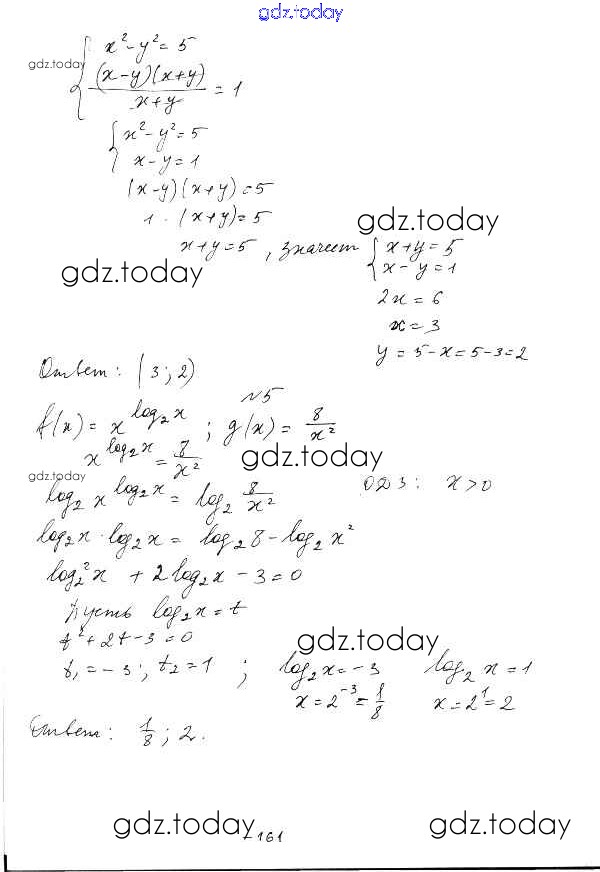 gdz.today
x² - y² = 5
gdz.today
(x-y)(x+y)/(x+y) = 1
{ x² - y² = 5
x - y = 1
(x-y)(x+y) = 5
1 · (x+y) = 5
gdz.today
x+y = 5, значит { x+y = 5
x - y = 1
gdz.today
2x = 6
x = 3
y = 5-x = 5-3 = 2
Ответ: (3; 2)
№5
f(x) = x^(log₂x) ; g(x) = 8/x²
x^(log₂x) = 8/x²
gdz.today
gdz.today
log₂ x^(log₂x) = log₂ 8/x²
ОДЗ: x>0
log₂x · log₂x = log₂8 - log₂x²
log₂²x + 2log₂x - 3 = 0
Пусть log₂x = t
t² + 2t - 3 = 0
gdz.today
t₁ = -3; t₂ = 1 ; log₂x = -3 log₂ x = 1
x = 2⁻³ = 1/8 x = 2¹ = 2
Ответ: 1/8 ; 2.
gdz.today
161
gdz.today